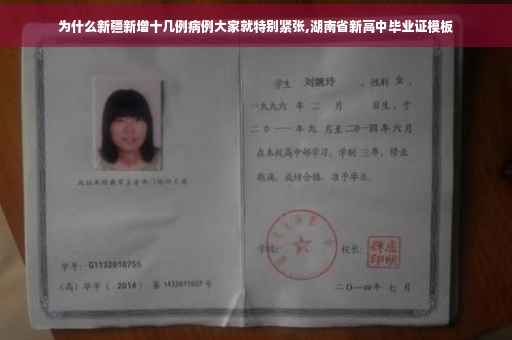 为什么新疆新增十几例病例大家就特别紧张,湖南省新高中毕业证模板
学生 刘婉玲 ，性别 女 ，
一九九六 年 二 月 日生，于
二〇一一年九 月至二〇一四年 六 月
在本校高中部学习，学制 三年，修业
期满，成绩合格，准予毕业。
学校：
校长：
学号： G1132010755
（高）毕字（ 2014 ）第 1432011027 号
二〇一四年 七 月